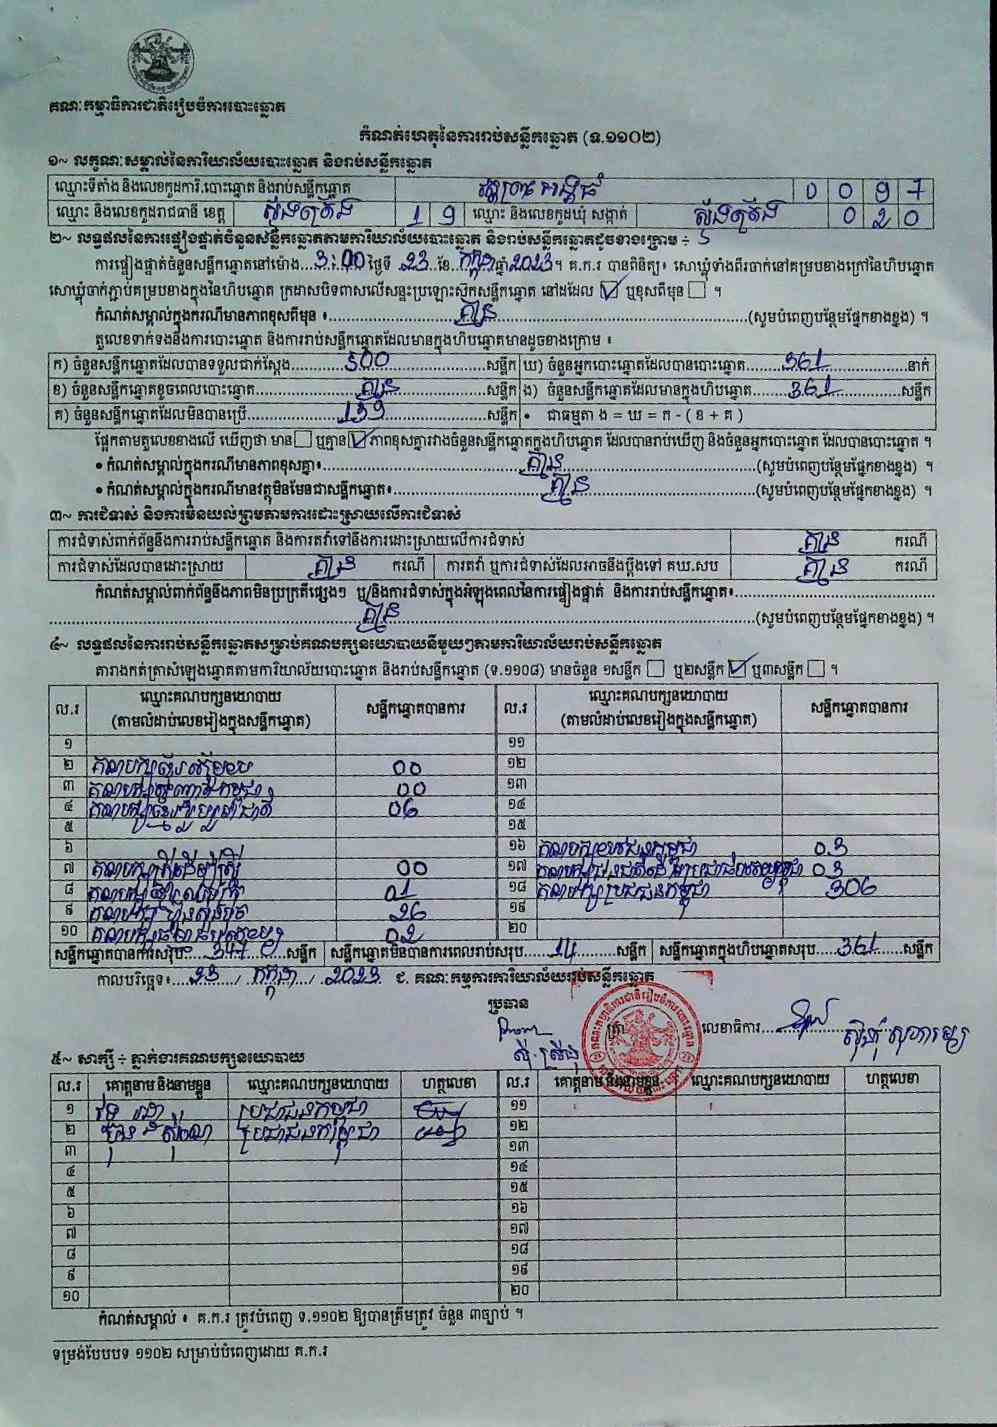 គណៈកម្មាធិការជាតិរៀបចំការបោះឆ្នោត
កំណត់ហេតុនៃការរាប់សន្លឹកឆ្នោត (ទ.១១០២)
១~ លក្ខណៈសម្គាល់នៃការិយាល័យបោះឆ្នោត និងរាប់សន្លឹកឆ្នោត
ឈ្មោះទីតាំង និងលេខកូដការិ.បោះឆ្នោត និងរាប់សន្លឹកឆ្នោត 0 0 9 7
ឈ្មោះ និងលេខកូដរាជធានី ខេត្ត ស្ទឹងត្រែង 1 9 ឈ្មោះ និងលេខកូដឃុំ សង្កាត់ ស្ទឹងត្រែង 0 2 0
២~ លទ្ធផលនៃការផ្ទៀងផ្ទាត់ចំនួនសន្លឹកឆ្នោតតាមការិយាល័យបោះឆ្នោត និងរាប់សន្លឹកឆ្នោតដូចខាងក្រោម ÷
ការផ្ទៀងផ្ទាត់ចំនួនសន្លឹកឆ្នោតនៅម៉ោង...3:00 ថ្ងៃទី 23 ខែ កក្កដា ឆ្នាំ 2023។ គ.ក.រ បានពិនិត្យ៖ សោឃ្មុំទាំងពីរចាក់នៅគម្របខាងក្រៅនៃហិបឆ្នោត
សោឃ្មុំចាក់ភ្ជាប់គម្របខាងក្នុងនៃហិបឆ្នោត ក្រដាសបិទពាសលើសន្ទះប្រឡោះស៊កសន្លឹកឆ្នោត នៅដដែល ☑ ឬខុសពីមុន ☐ ។
កំណត់សម្គាល់ក្នុងករណីមានភាពខុសពីមុន ៖ គ្មាន (សូមបំពេញបន្ថែមផ្នែកខាងខ្នង) ។
តួលេខទាក់ទងនឹងការបោះឆ្នោត និងការរាប់សន្លឹកឆ្នោតដែលមានក្នុងហិបឆ្នោតមានដូចខាងក្រោម ៖
ក) ចំនួនសន្លឹកឆ្នោតដែលបានទទួលជាក់ស្តែង 500 សន្លឹក ឃ) ចំនួនអ្នកបោះឆ្នោតដែលបានបោះឆ្នោត 361 នាក់
ខ) ចំនួនសន្លឹកឆ្នោតខូចពេលបោះឆ្នោត គ្មាន សន្លឹក ង) ចំនួនសន្លឹកឆ្នោតដែលមានក្នុងហិបឆ្នោត 361 សន្លឹក
គ) ចំនួនសន្លឹកឆ្នោតដែលមិនបានប្រើ 139 សន្លឹក • ជាធម្មតា ង = ឃ = ក - ( ខ + គ )
ផ្អែកតាមតួលេខខាងលើ ឃើញថា មាន ☐ ឬគ្មាន ☑ ភាពខុសគ្នារវាងចំនួនសន្លឹកឆ្នោតក្នុងហិបឆ្នោត ដែលបានរាប់ឃើញ និងចំនួនអ្នកបោះឆ្នោត ដែលបានបោះឆ្នោត ។
• កំណត់សម្គាល់ក្នុងករណីមានភាពខុសគ្នា៖ គ្មាន (សូមបំពេញបន្ថែមផ្នែកខាងខ្នង) ។
• កំណត់សម្គាល់ក្នុងករណីមានវត្ថុមិនមែនជាសន្លឹកឆ្នោត៖ គ្មាន (សូមបំពេញបន្ថែមផ្នែកខាងខ្នង) ។
៣~ ការជំទាស់ និងការមិនយល់ព្រមតាមការដោះស្រាយលើការជំទាស់
ការជំទាស់ពាក់ព័ន្ធនឹងការរាប់សន្លឹកឆ្នោត និងការតវ៉ាទៅនឹងការដោះស្រាយលើការជំទាស់ គ្មាន ករណី
ការជំទាស់ដែលបានដោះស្រាយ គ្មាន ករណី ការតវ៉ា ឬការជំទាស់ដែលអាចនឹងប្តឹងទៅ គឃ.សប គ្មាន ករណី
កំណត់សម្គាល់ពាក់ព័ន្ធនឹងភាពមិនប្រក្រតីផ្សេងៗ ឬ/និងការជំទាស់ក្នុងអំឡុងពេលនៃការផ្ទៀងផ្ទាត់ និងការរាប់សន្លឹកឆ្នោត៖
គ្មាន (សូមបំពេញបន្ថែមផ្នែកខាងខ្នង) ។
៤~ លទ្ធផលនៃការរាប់សន្លឹកឆ្នោតសម្រាប់គណបក្សនយោបាយនីមួយៗតាមការិយាល័យរាប់សន្លឹកឆ្នោត
តារាងកត់ត្រាសំឡេងឆ្នោតតាមការិយាល័យបោះឆ្នោត និងរាប់សន្លឹកឆ្នោត (ទ.១១០៨) មានចំនួន ១សន្លឹក ☐ ឬ២សន្លឹក ☑ ឬ៣សន្លឹក ☐ ។
ល.រ ឈ្មោះគណបក្សនយោបាយ (តាមលំដាប់លេខរៀងក្នុងសន្លឹកឆ្នោត) សន្លឹកឆ្នោតបានការ ល.រ ឈ្មោះគណបក្សនយោបាយ (តាមលំដាប់លេខរៀងក្នុងសន្លឹកឆ្នោត) សន្លឹកឆ្នោតបានការ
១ ១១
២ 00 ១២
៣ 00 ១៣
៤ 06 ១៤
៥ ១៥
៦ ១៦ 03
៧ 00 ១៧ 03
៨ 01 ១៨ គណបក្សប្រជាជនកម្ពុជា 306
៩ គណបក្ស ហ៊្វុនស៊ិនប៉ិច 26 ១៩
១០ 02 ២០
សន្លឹកឆ្នោតបានការសរុប 347 សន្លឹក សន្លឹកឆ្នោតមិនបានការពេលរាប់សរុប 14 សន្លឹក សន្លឹកឆ្នោតក្នុងហិបឆ្នោតសរុប 361 សន្លឹក
កាលបរិច្ឆេទ៖ 23 / កក្កដា / 2023 ជ. គណៈកម្មការការិយាល័យរាប់សន្លឹកឆ្នោត
ប្រធាន
ត្រា លេខាធិការ
៥~ សាក្សី ÷ ភ្នាក់ងារគណបក្សនយោបាយ
ល.រ គោត្តនាម និងនាមខ្លួន ឈ្មោះគណបក្សនយោបាយ ហត្ថលេខា ល.រ គោត្តនាម និងនាមខ្លួន ឈ្មោះគណបក្សនយោបាយ ហត្ថលេខា
១ ប្រជាជនកម្ពុជា ១១
២ ប្រជាជនកម្ពុជា ១២
៣ ១៣
៤ ១៤
៥ ១៥
៦ ១៦
៧ ១៧
៨ ១៨
៩ ១៩
១០ ២០
កំណត់សម្គាល់ ៖ គ.ក.រ ត្រូវបំពេញ ទ.១១០២ ឱ្យបានត្រឹមត្រូវ ចំនួន ៣ច្បាប់ ។
ទម្រង់បែបបទ ១១០២ សម្រាប់បំពេញដោយ គ.ក.រ